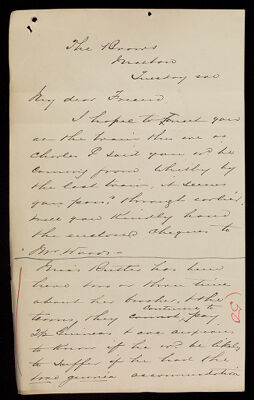 The Brows
Malton
Tuesday eve
My dear Friend
I hope to meet you
on the train this eve as
Charles P said you wd be
coming from Whitby by
the last train, it seems
you pass'd through earlier.
will you kindly hand
the enclosed cheques to
Mr. Wood.
Miss Rutter has been
here two or three times
about her brother, & the
terms, they cannot continue to pay
2½ Guineas & are anxious
to know if he wd be likely
to suffer if he had the
two guinea accommodation